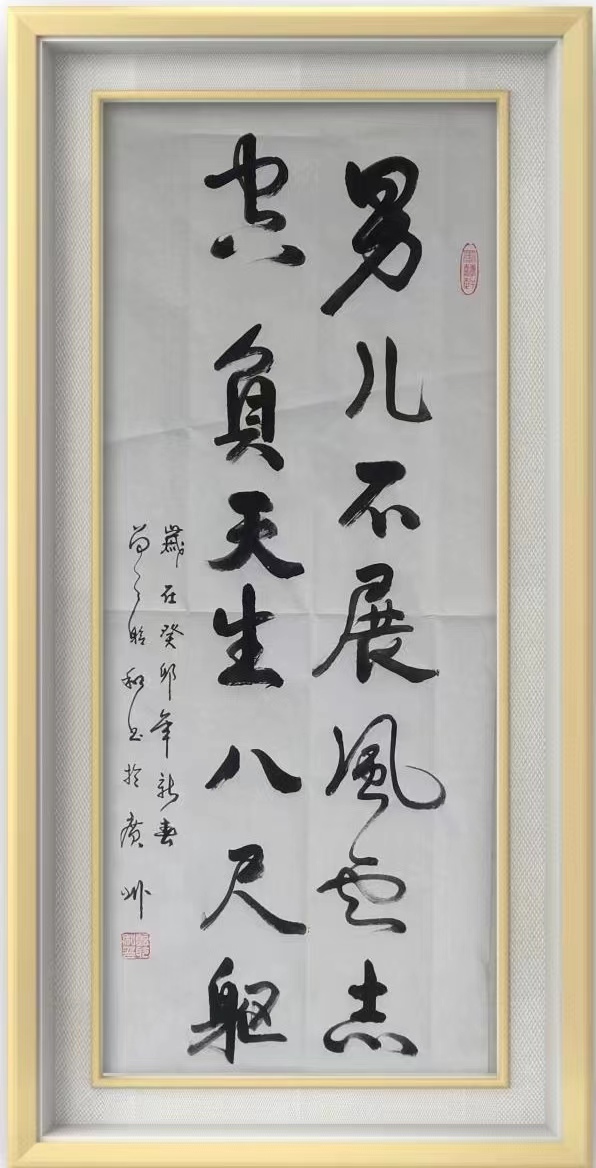 男儿不展風云志
空負天生八尺軀
歲在癸卯年新春
和书於廣州